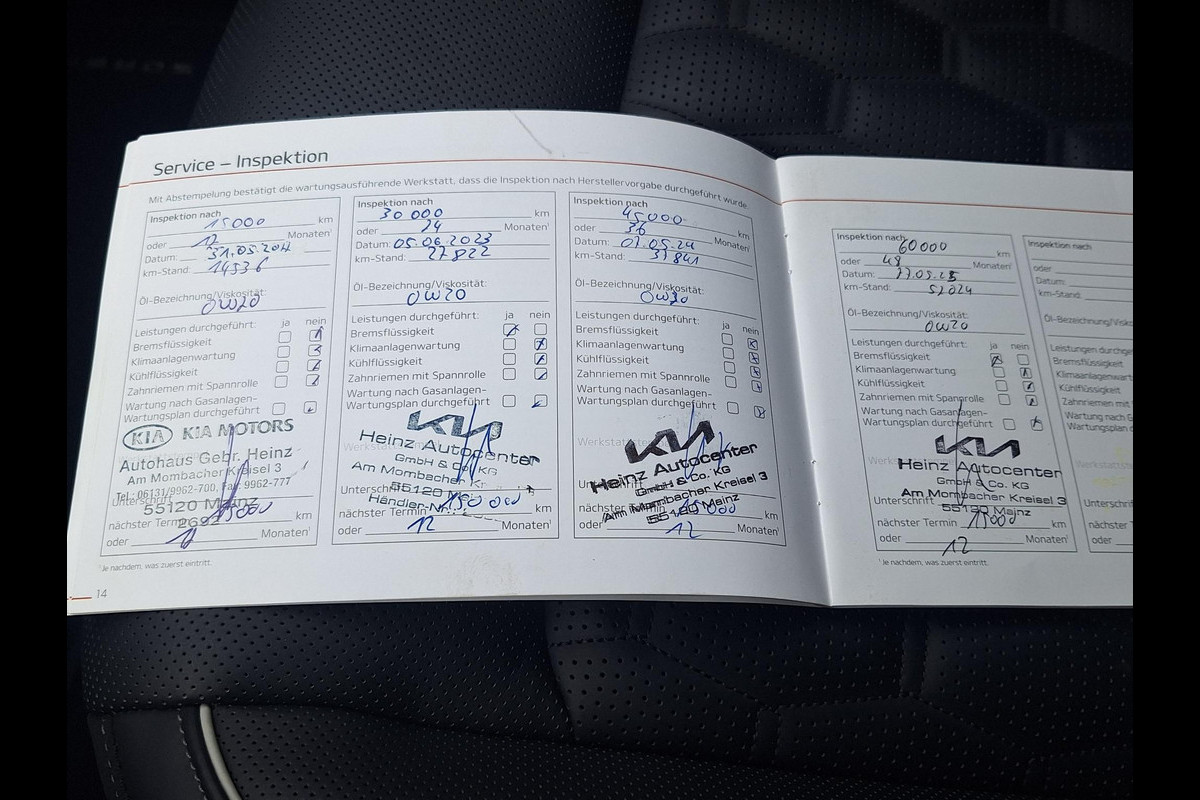 Service – Inspektion
Mit Abstempelung bestätigt die wartungsausführende Werkstatt, dass die Inspektion nach Herstellervorgabe durchgeführt wurde.
Inspektion nach
15000 km
oder 12 Monaten¹
Datum:
km-Stand: 14536
Öl-Bezeichnung/Viskosität:
0W20
Leistungen durchgeführt: ja nein
Bremsflüssigkeit
Klimaanlagenwartung
Kühlflüssigkeit
Zahnriemen mit Spannrolle
Wartung nach Gasanlagen-
Wartungsplan durchgeführt
KIA KIA MOTORS
Autohaus Gebr. Heinz
Am Mombacher Kreisel 3
Tel.: 06131/9962-700, Fax: 9962-777
Unterschrift
55120 Mainz
nächster Termin 15000 km
oder Monaten¹
¹Je nachdem, was zuerst eintritt.
14
Inspektion nach
30 000 km
oder 24 Monaten¹
Datum: 05.06.2023
km-Stand: 27822
Öl-Bezeichnung/Viskosität:
0W20
Leistungen durchgeführt: ja nein
Bremsflüssigkeit
Klimaanlagenwartung
Kühlflüssigkeit
Zahnriemen mit Spannrolle
Wartung nach Gasanlagen-
Wartungsplan durchgeführt
KIA
Heinz Autocenter
GmbH & Co. KG
Am Mombacher Kr
55120
Händler-Nr.
nächster Termin km
oder 12 Monaten¹
Inspektion nach
45000 km
oder 36 Monaten¹
Datum: 07.05.24
km-Stand: 37841
Öl-Bezeichnung/Viskosität:
Leistungen durchgeführt: ja nein
Bremsflüssigkeit
Klimaanlagenwartung
Kühlflüssigkeit
Zahnriemen mit Spannrolle
Wartung nach Gasanlagen-
Wartungsplan durchgeführt
KIA
Heinz Autocenter
GmbH & Co. KG
Am Mombacher Kreisel 3
55120 Mainz
nächster Termin 15000 km
oder 12 Monaten¹
Inspektion nach
60000 km
oder 48 Monaten¹
Datum:
km-Stand: 52024
Öl-Bezeichnung/Viskosität:
0W20
Leistungen durchgeführt: ja nein
Bremsflüssigkeit
Klimaanlagenwartung
Kühlflüssigkeit
Zahnriemen mit Spannrolle
Wartung nach Gasanlagen-
Wartungsplan durchgeführt
KIA
Heinz Autocenter
GmbH & Co. KG
Am Mombacher Kreisel 3
Unterschrift
55120 Mainz
nächster Termin 15000 km
oder 12 Monaten¹
¹Je nachdem, was zuerst eintritt.
Inspektion nach
oder
Datum:
km-Stand:
Öl-Bezeichnung/Viskos
Leistungen durchgef
Bremsflüssigkeit
Klimaanlagenwart
Kühlflüssigkeit
Zahnriemen mit
Wartung nach Ga
Wartungsplan d
Unterschrift
nächster T
oder